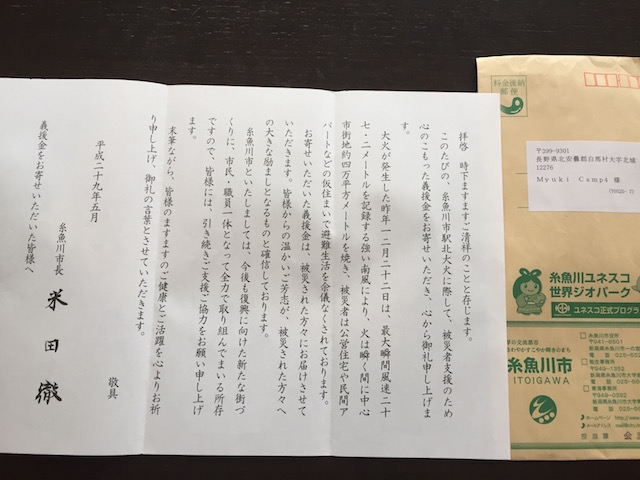 拝啓　時下ますますご清祥のことと存じます。
このたびの、糸魚川市駅北大火に際して、被災者支援のため
心のこもった義援金をお寄せいただき、心から御礼申し上げま
す。
大火が発生した昨年一二月二十二日は、最大瞬間風速二十
七・二メートルを記録する強い南風により、火は瞬く間に中心
市街地約四万平方メートルを焼き、被災者は公営住宅や民間ア
パートなどの仮住まいで避難生活を余儀なくされております。
お寄せいただいた義援金は、被災された方々にお届けさせて
いただきます。皆様からの温かいご芳志が、被災された方々へ
の大きな励ましとなるものと確信しております。
糸魚川市といたしましては、今後も復興に向けた新たな街づ
くりに、市民、職員一体となって全力で取り組んでまいる所存
ですので、皆様には、引き続きご支援ご協力をお願い申し上げ
ます。
末筆ながら、皆様のますますのご健康とご活躍を心よりお祈
り申し上げ、御礼の言葉とさせていただきます。
敬具
平成二十九年五月
糸魚川市長　米田徹
義援金をお寄せいただいた皆様へ
料金後納
郵便
〒399-9301
長野県北安曇郡白馬村大字北城
12276
Myuki Camp4 様
糸魚川ユネスコ
世界ジオパーク
ユネスコ正式プログラ
さわやかすこやか輝きのまち
糸魚川市
ITOIGAWA
糸魚川市役所
〒941-8501
新潟県糸魚川市一の宮
電話 025-5
能生事務所
〒949-1352
新潟県糸魚川市大字能
電話 025-56
青海事務所
〒949-0392
新潟県糸魚川市大字青
電話 025-56
ホームページ http://www.
メールアドレス
担当課